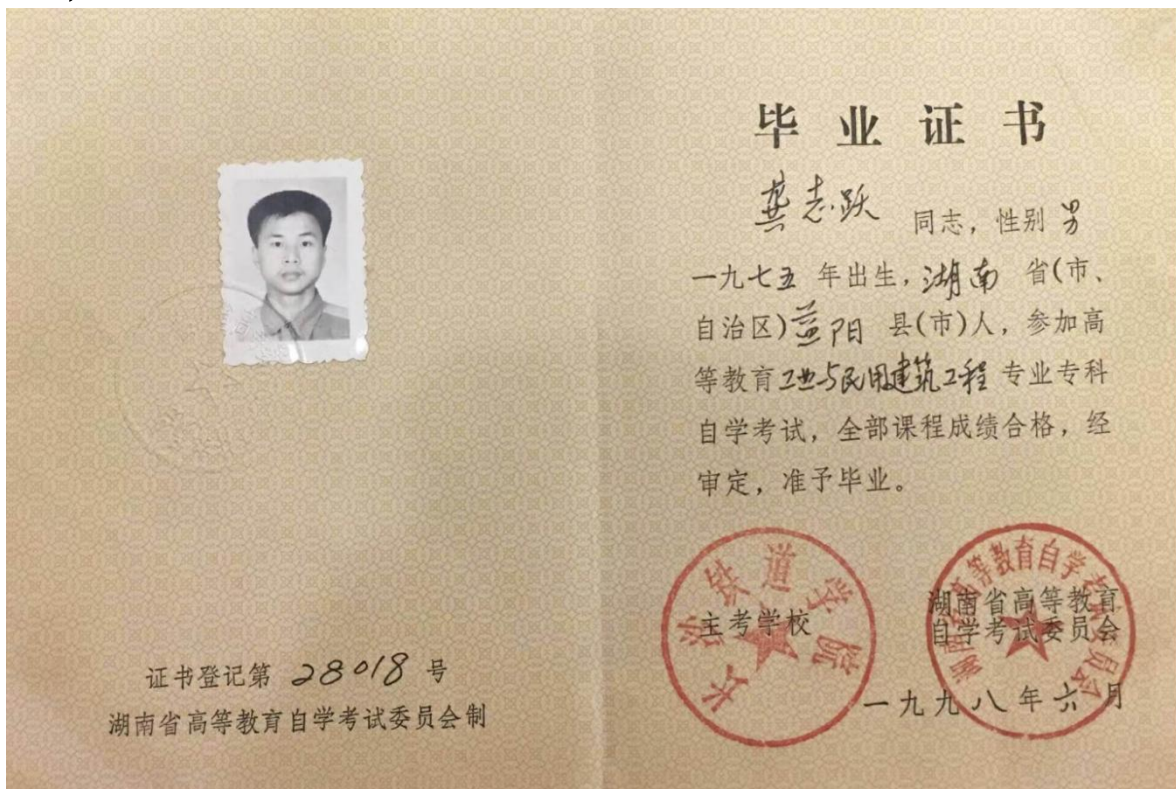 毕业证书
龚志跃 同志，性别 男
一九七五 年出生，湖南 省(市、
自治区)益阳 县(市)人，参加高
等教育工业与民用建筑工程 专业专科
自学考试，全部课程成绩合格，经
审定，准予毕业。
长沙铁道学院
主考学校
湖南省高等教育自学考试委员会
湖南省高等教育
自学考试委员会
一九九八年六月
证书登记第 28018 号
湖南省高等教育自学考试委员会制